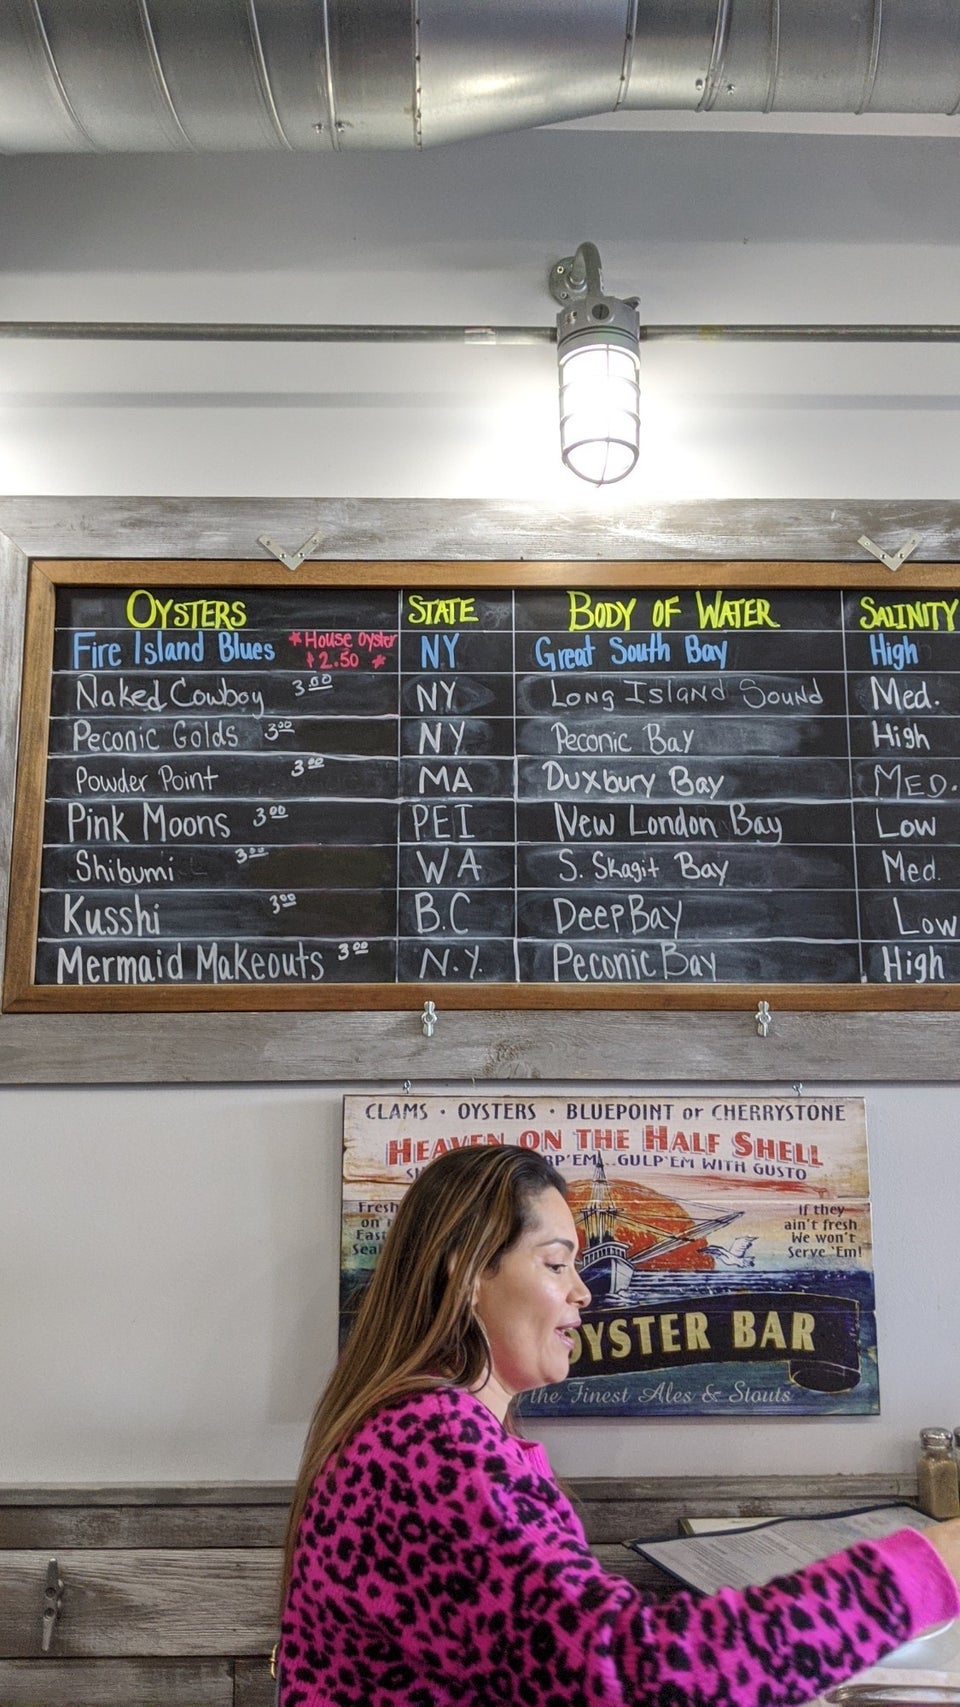 OYSTERS STATE BODY OF WATER SALINITY
Fire Island Blues *House Oyster $2.50 * NY Great South Bay High
Naked Cowboy 3.00 NY Long Island Sound Med.
Peconic Golds 3.00 NY Peconic Bay High
Powder Point 3.00 MA Duxbury Bay MED.
Pink Moons 3.00 PEI New London Bay Low
Shibumi 3.00 WA S. Skagit Bay Med.
Kusshi 3.00 B.C Deep Bay Low
Mermaid Makeouts 3.00 N.Y. Peconic Bay High
CLAMS · OYSTERS · BLUEPOINT or CHERRYSTONE
HEAVEN ON THE HALF SHELL
'EM...GULP'EM WITH GUSTO
Fresh
on
East
If they
ain't fresh
We won't
Serve 'Em!
OYSTER BAR
the Finest Ales & Stouts